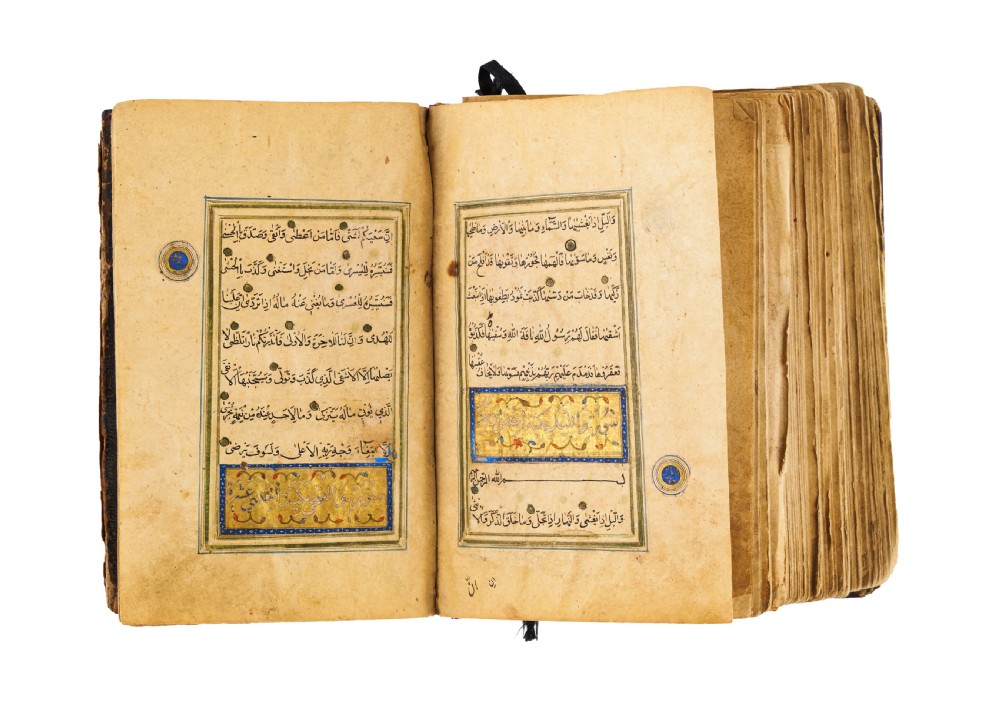 وَالَّيْلِ اِذَا يَغْشٰيهَا وَالسَّمَآءِ وَمَا بَنٰيهَا وَالْاَرْضِ وَمَا طَحٰيهَا
وَنَفْسٍ وَمَا سَوّٰيهَا فَاَلْهَمَهَا فُجُورَهَا وَتَقْوٰيهَا قَدْ اَفْلَحَ مَنْ
زَكّٰيهَا وَقَدْ خَابَ مَنْ دَسّٰيهَا كَذَّبَتْ ثَمُودُ بِطَغْوٰيهَا اِذِ انْبَعَثَ
اَشْقٰيهَا فَقَالَ لَهُمْ رَسُولُ اللّٰهِ نَاقَةَ اللّٰهِ وَسُقْيٰهَا فَكَذَّبُوهُ
فَعَقَرُوهَا فَدَمْدَمَ عَلَيْهِمْ رَبُّهُمْ بِذَنْبِهِمْ فَسَوّٰيهَا وَلَا يَخَافُ عُقْبٰيهَا
سورة والليل
بِسْمِ اللّٰهِ الرَّحْمٰنِ الرَّحِيمِ
وَالَّيْلِ اِذَا يَغْشٰى وَالنَّهَارِ اِذَا تَجَلّٰى وَمَا خَلَقَ الذَّكَرَ وَالْاُنْثٰى
اِنَّ
اِنَّ سَعْيَكُمْ لَشَتّٰى فَاَمَّا مَنْ اَعْطٰى وَاتَّقٰى وَصَدَّقَ بِالْحُسْنٰى
فَسَنُيَسِّرُهُ لِلْيُسْرٰى وَاَمَّا مَنْ بَخِلَ وَاسْتَغْنٰى وَكَذَّبَ بِالْحُسْنٰى
فَسَنُيَسِّرُهُ لِلْعُسْرٰى وَمَا يُغْنٖى عَنْهُ مَالُهُ اِذَا تَرَدّٰى اِنَّ عَلَيْنَا
لَلْهُدٰى وَاِنَّ لَنَا لَلْاٰخِرَةَ وَالْاُولٰى فَاَنْذَرْتُكُمْ نَارًا تَلَظّٰى لَا
يَصْلٰيهَا اِلَّا الْاَشْقَى الَّذٖى كَذَّبَ وَتَوَلّٰى وَسَيُجَنَّبُهَا الْاَتْقَى
الَّذٖى يُؤْتٖى مَالَهُ يَتَزَكّٰى وَمَا لِاَحَدٍ عِنْدَهُ مِنْ نِعْمَةٍ تُجْزٰى
اِلَّا ابْتِغَآءَ وَجْهِ رَبِّهِ الْاَعْلٰى وَلَسَوْفَ يَرْضٰى
سورة والضحى